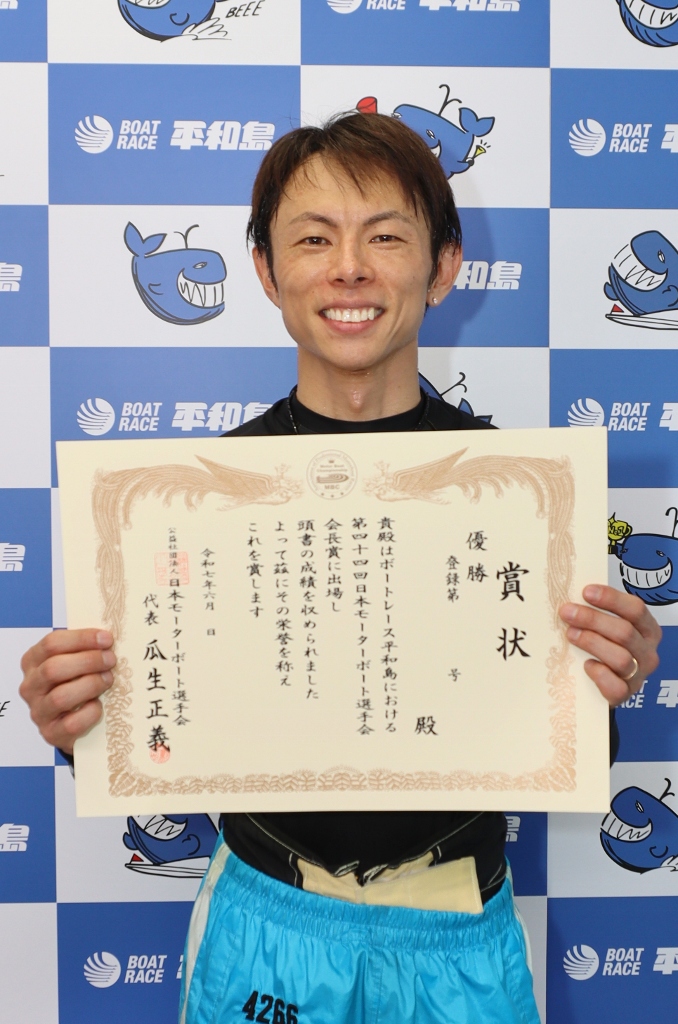 BEEE
BOAT RACE 平和島
BOAT
RACE 平和島
BOAT
RACE 平
平和島
BOAT
RACE 平和島
BOAT
RACE 平
賞状
優勝
登録第　号
殿
貴殿はボートレース平和島における
第四十四回日本モーターボート選手会
会長賞に出場し
頭書の成績を収められました
よって茲にその栄誉を称え
これを賞します
令和七年六月　日
公益社団法人日本モーターボート選手会
代表 瓜生正義
BOAT
RACE
BOAT
RACE 平
4266